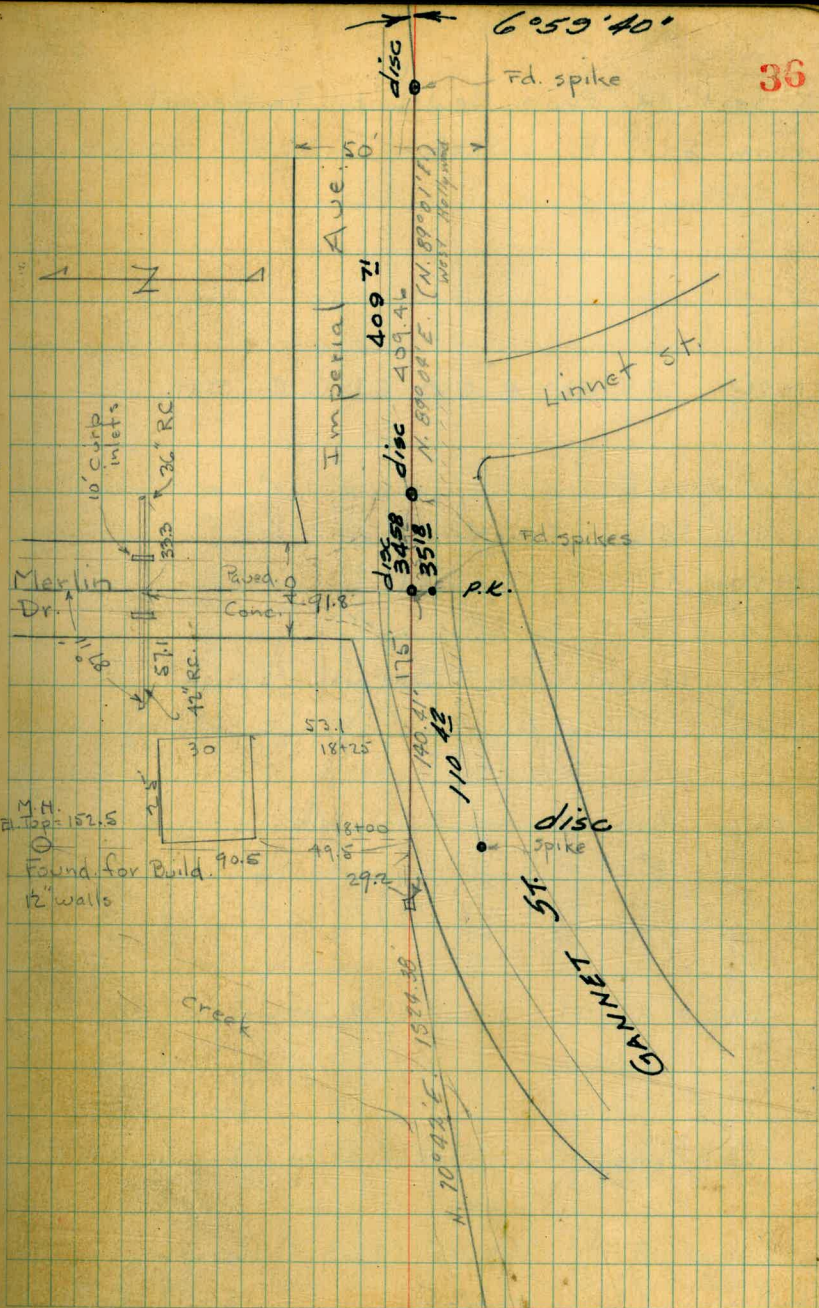 6°59'40"
36
disc
Fd. spike
50'
Imperial Ave.
409 71
409.46
N. 89°04' E. (N. 89°01' E.)
West Hollywood
Linnet St.
N
10' curb
inlets
36" RC
33.3
disc
disc
34 58
35 18
Fd. spikes
P.K.
Merlin
Dr.
Paved.
Conc.
40
91.8
57.1
42" RC.
175'
140.41'
110 42
53.1
18+25
30
25
M.H.
El. Top = 152.5
Found. for Build.
12" walls
90.5
18+00
49.5
29.2
disc
spike
GANNET ST.
Creek
1524.38'
N. 70°42' E.